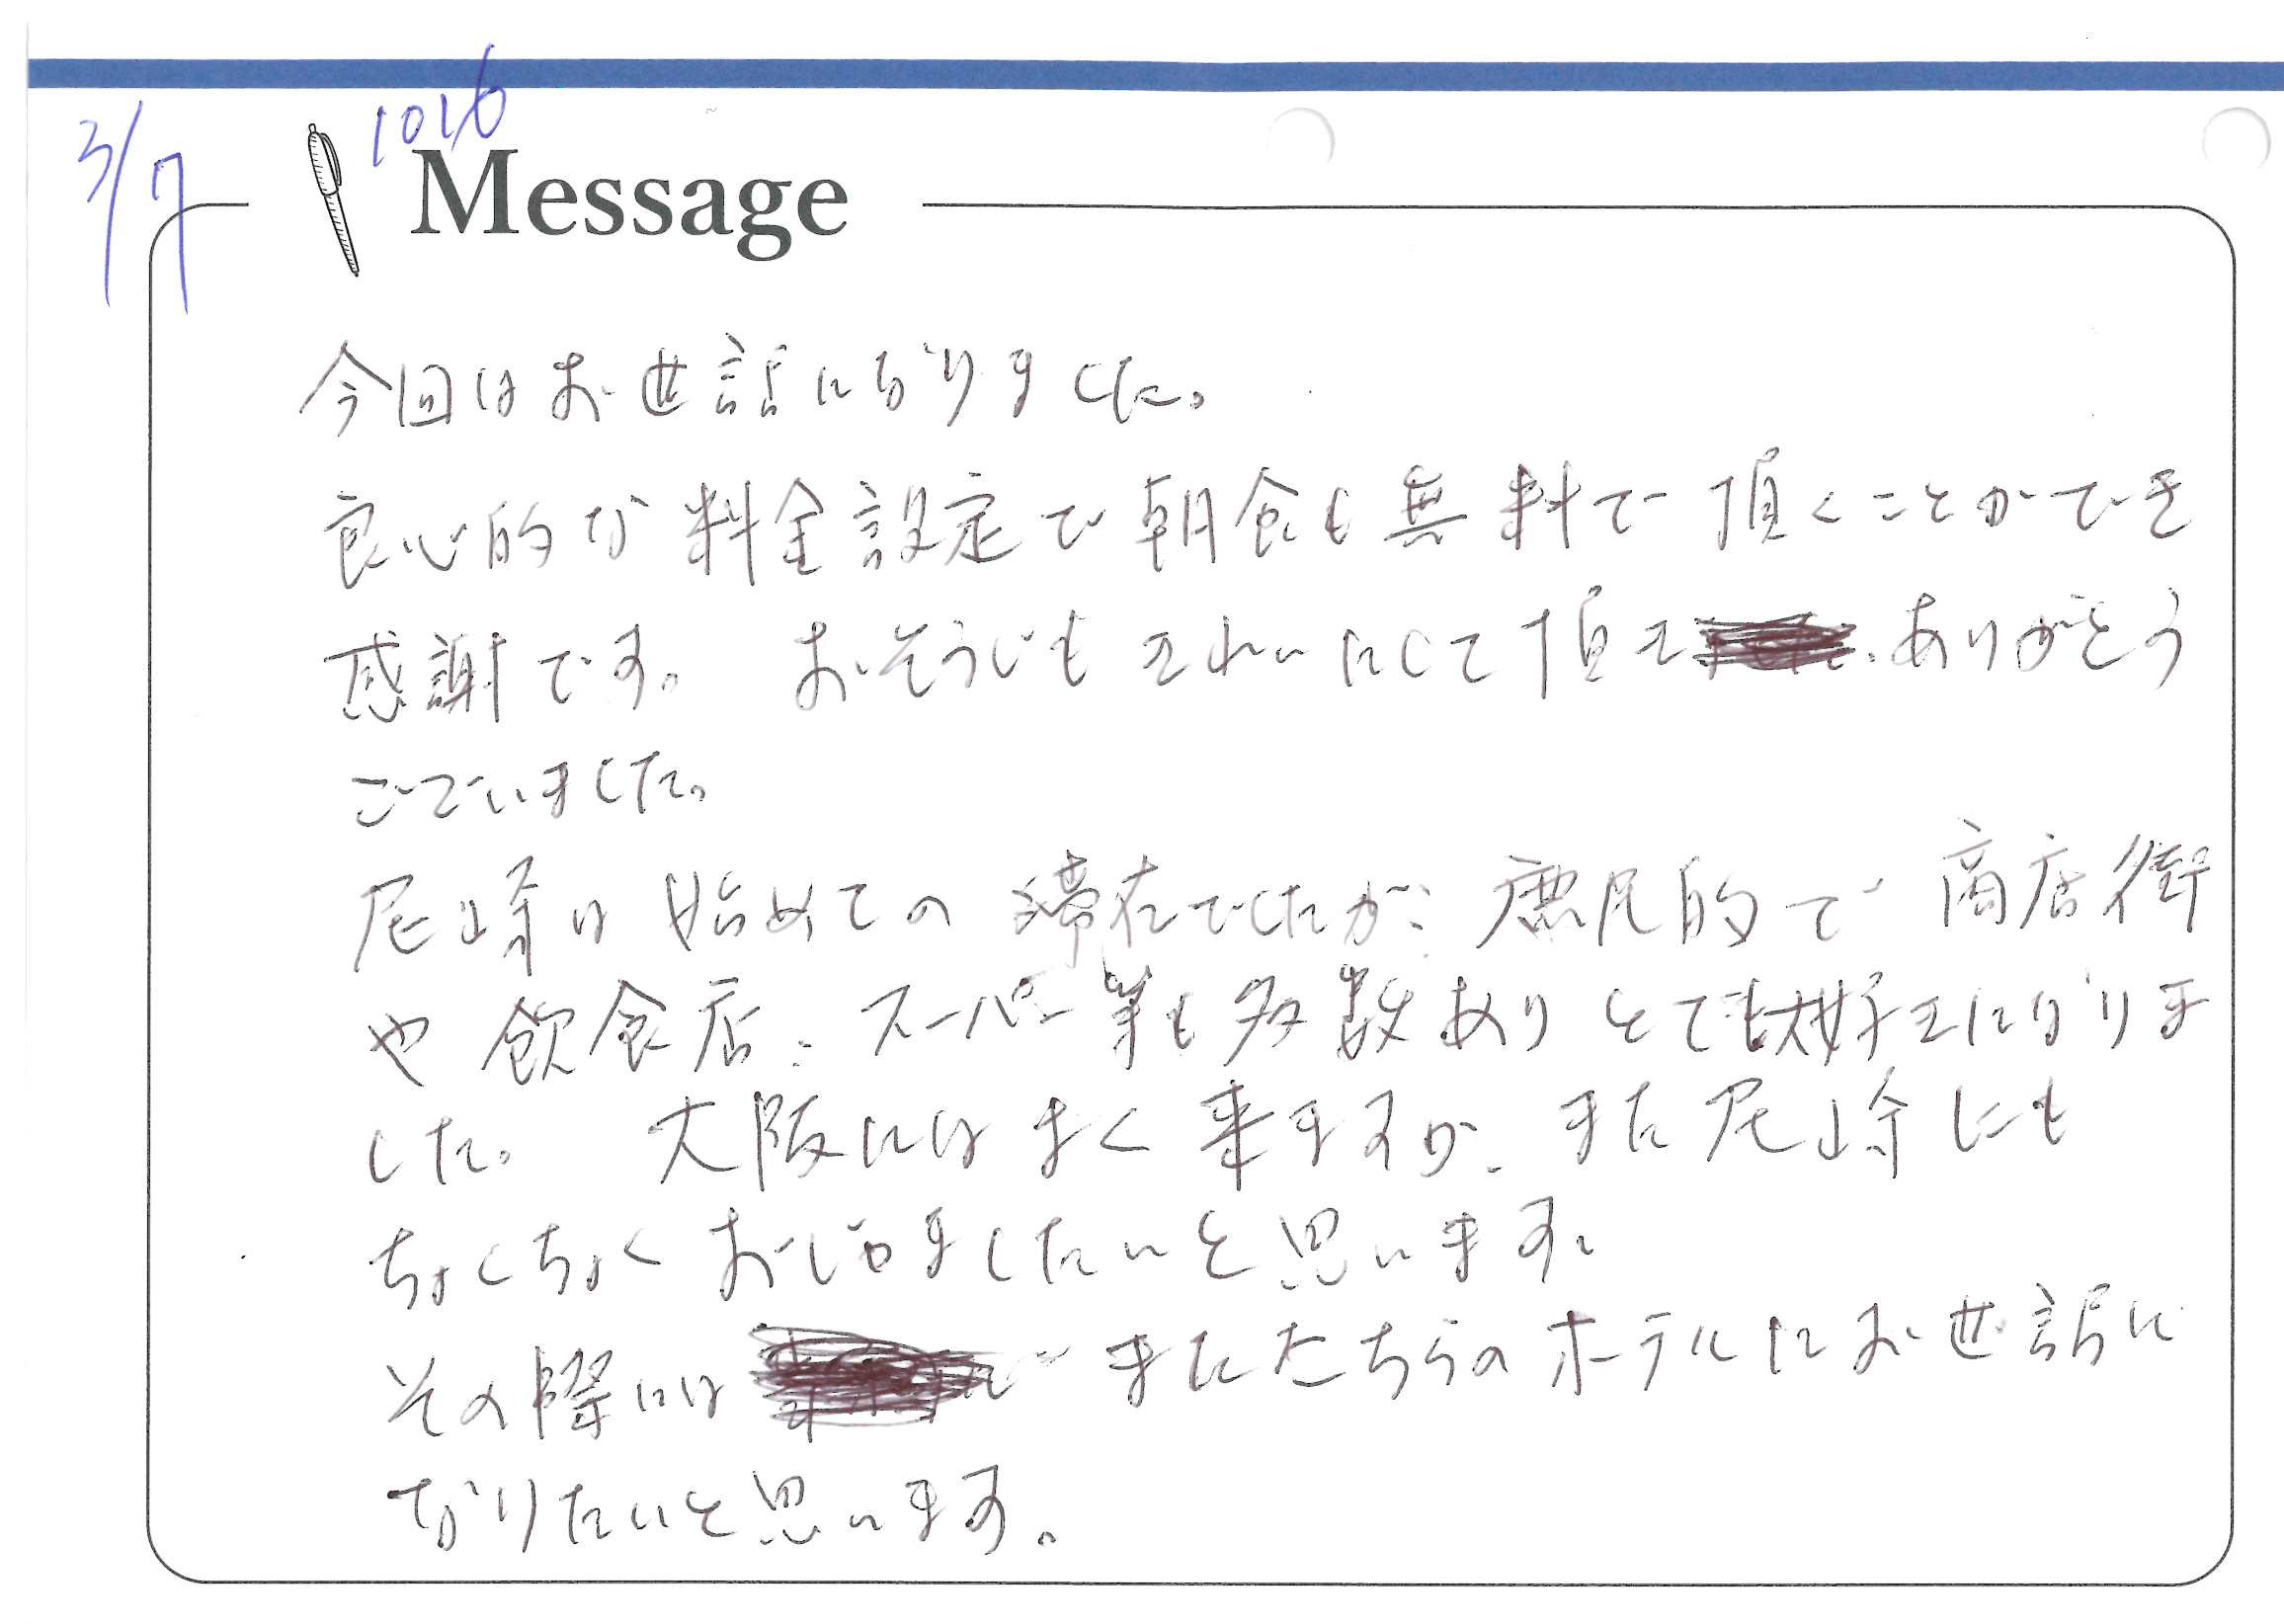 3/7
1016
Message
今回はお世話になりました。
良心的な料金設定で朝食も無料で頂くことができ
感謝です。 おそうじもきれいにして頂き、ありがとう
ございました。
尾崎は始めての滞在でしたが、庶民的で商店街
や飲食店、スーパー等も多数ありとても大好きになりま
した。 大阪にはよく来ますが、また尾崎にも
ちょくちょくおじゃましたいと思います。
その際には またこちらのホテルにお世話に
なりたいと思います。